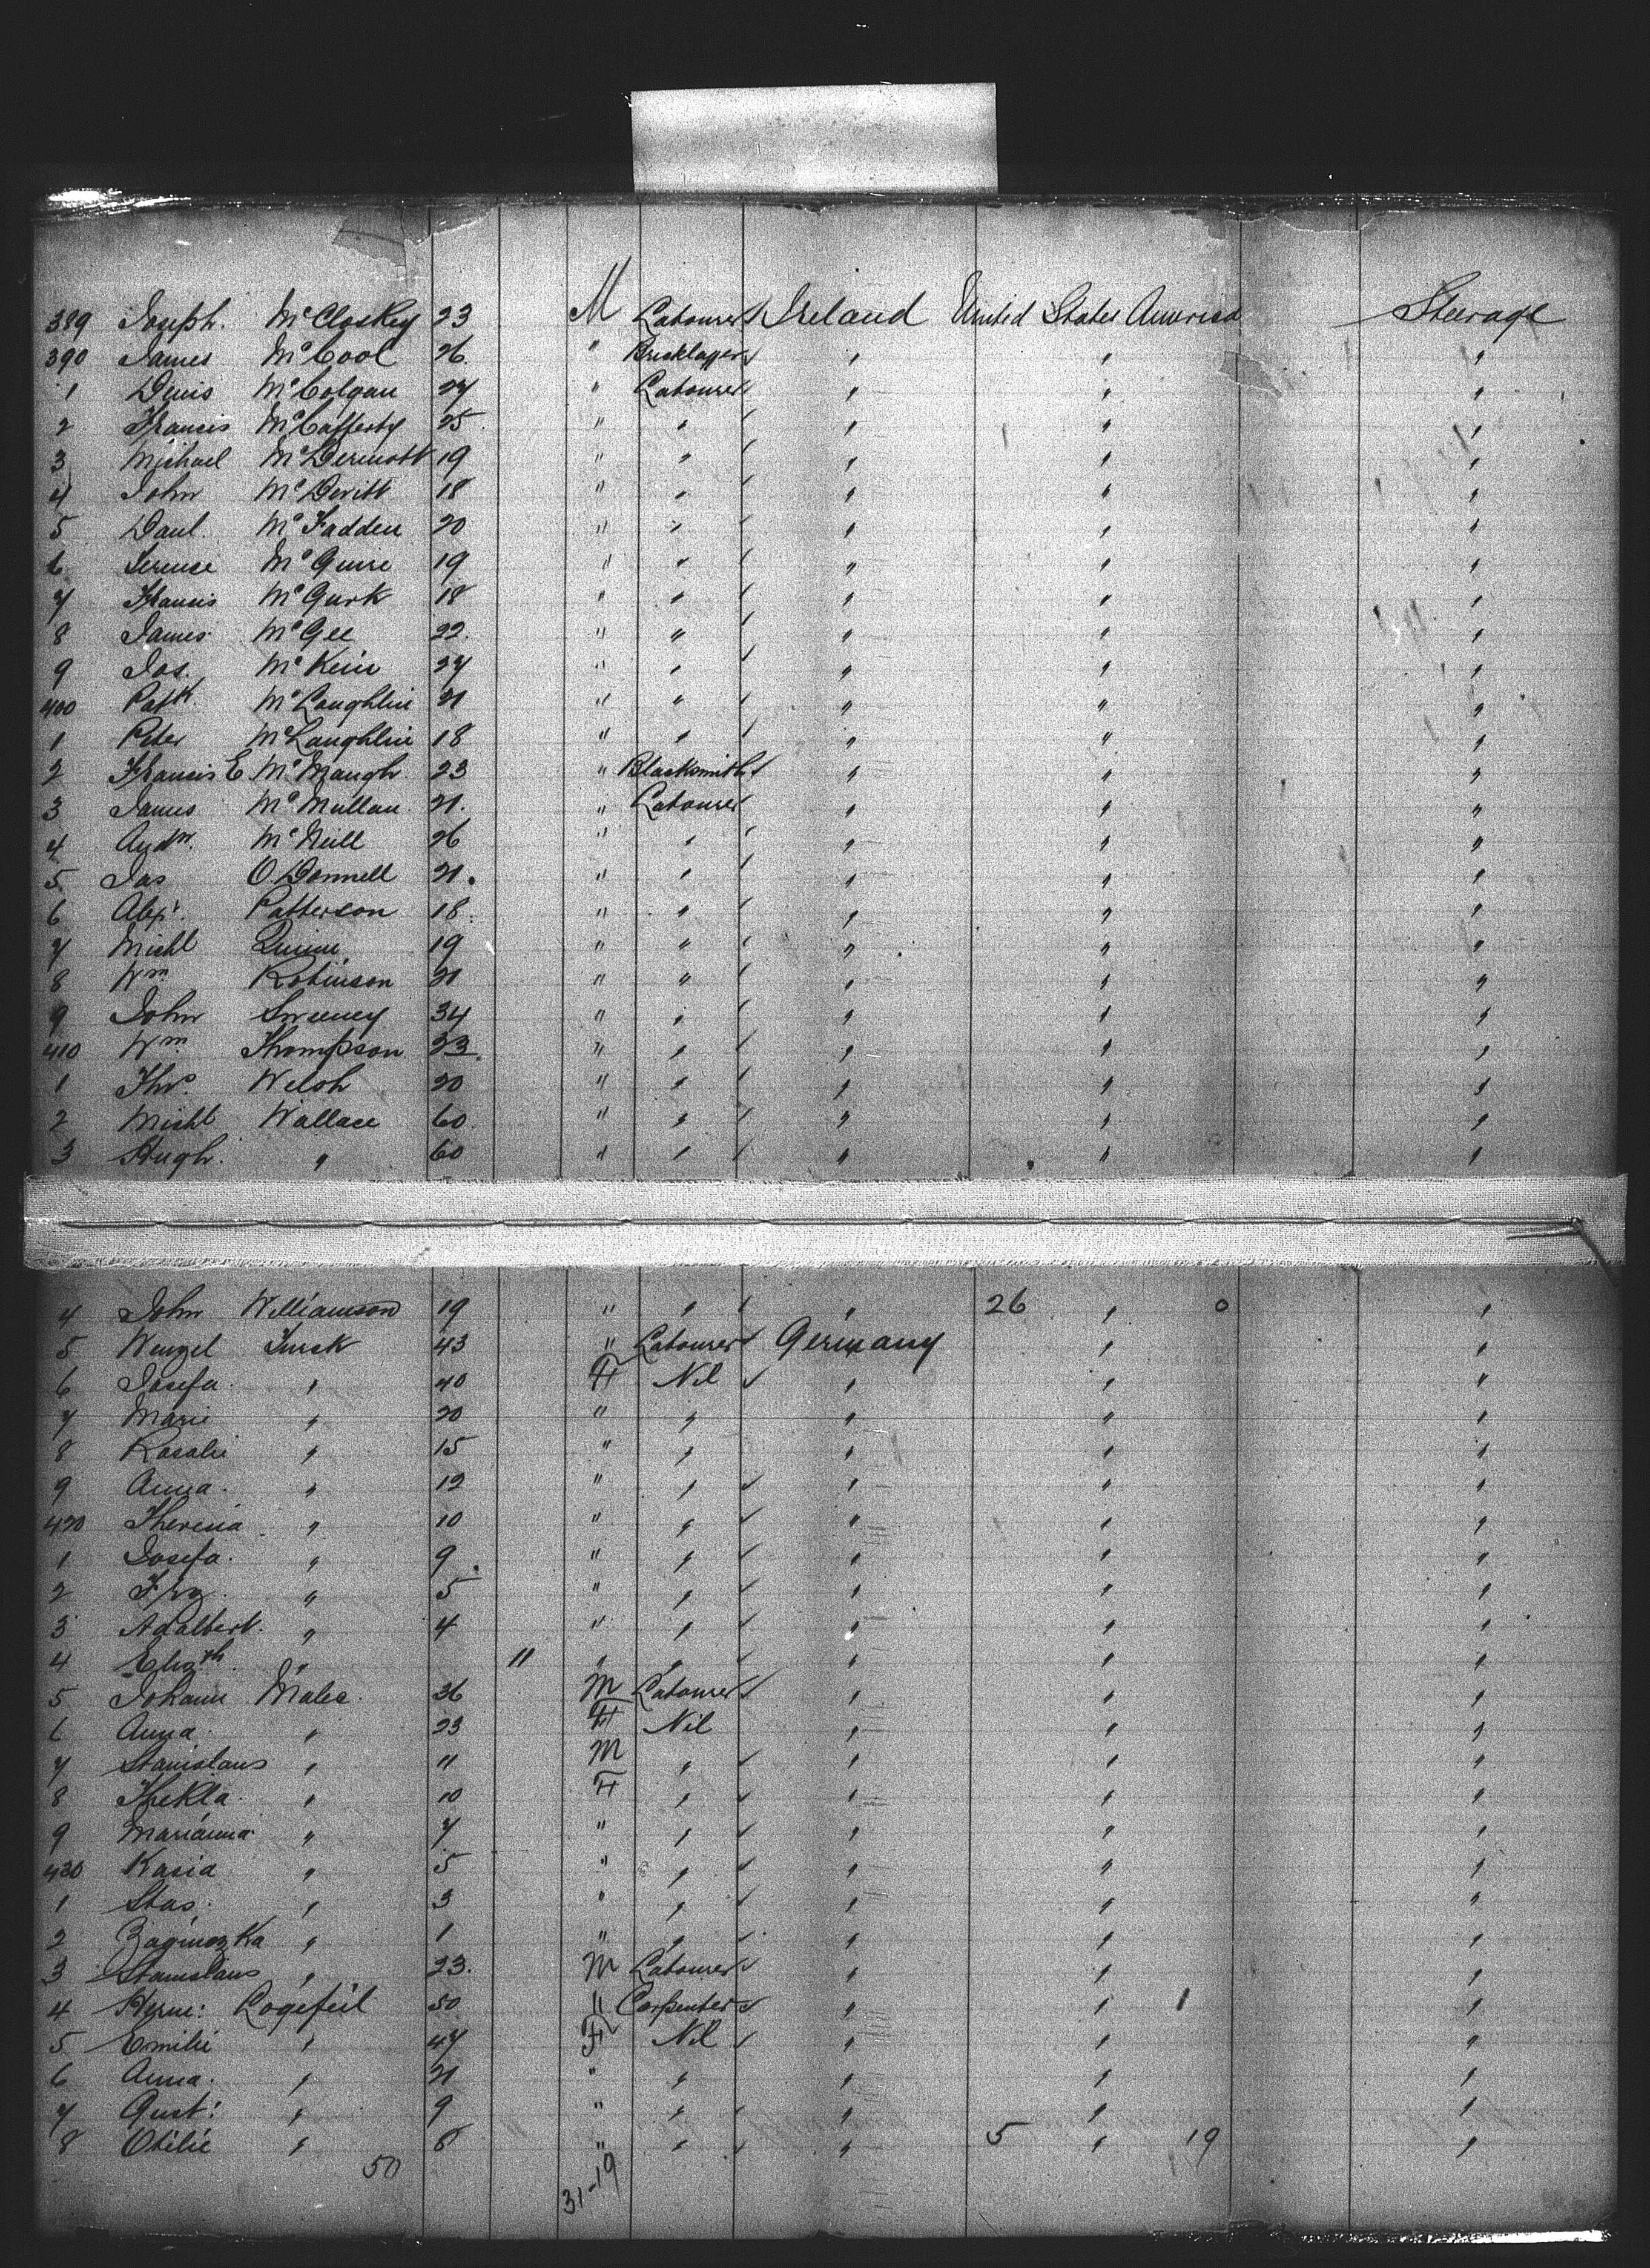 389 Joseph. McCloskey 23 M Labourer Ireland United States America Steerage
390 James McCool 26. " Bricklayer " " "
1 Denis McColgan 27 " Labourer " " "
2 Francis McCafferty 25. " " " " "
3 Michael McDermott 19 " " " " "
4 John McDevitt 18 " " " " "
5 Danl. McFadden 20 " " " " "
6 Terence McGuire 19 " " " " "
7 Francis McGurk 18 " " " " "
8 James McGee 22. " " " " "
9 Jos. McKein 27 " " " " "
400 Patk. McLaughlin 21 " " " " "
1 Peter McLaughlin 18 " " " " "
2 Francis E McManagh. 23 " Blacksmith " " "
3 James McMullan 21. " Labourer " " "
4 Andw. McNeill 26 " " " " "
5 Jas O.Donnell 21. " " " " "
6 Alexr. Patterson 18. " " " " "
7 Michl Quinn 19 " " " " "
8 Wm. Robinson 21 " " " " "
9 John Sweeney 34 " " " " "
410 Wm. Thompson 23. " " " " "
1 Thos. Welsh 20 " " " " "
2 Michl Wallace 60. " " " " "
3 Hugh. " 60 " " " " "
4 John Williamson 19 " " " 26 " 0 "
5 Wenzel Turek 43 " Labourer Germany " "
6 Josefa. " 40 F Nil " " "
7 Marie " 20 " " " " "
8 Rosalie " 15 " " " " "
9 Anna. " 12 " " " " "
420 Theresia " 10 " " " " "
1 Josefa. " 9. " " " " "
2 Frz. " 5 " " " " "
3 Adalbert. " 4 " " " " "
4 Elizth. " 11 " " " " "
5 Johann Malec. 36 M Labourer " " "
6 Anna. " 23 F Nil " " "
7 Stanislaus " 11 M " " " "
8 Thekla. " 10 F " " " "
9 Marianna " 7 " " " " "
430 Kasia " 5 " " " " "
1 Stas. " 3 " " " " "
2 " 1 " " " " "
3 Stanislaus " 23. M Labourer " " "
4 Herm: Logefeil 50 " Carpenter " " 1 "
5 Emilie " 47 F Nil " " "
6 Anna. " 21 " " " " "
7 Gust: " 9 " " " " "
8 Otilie " 8 " " " 5 " 19 "
50 31-19